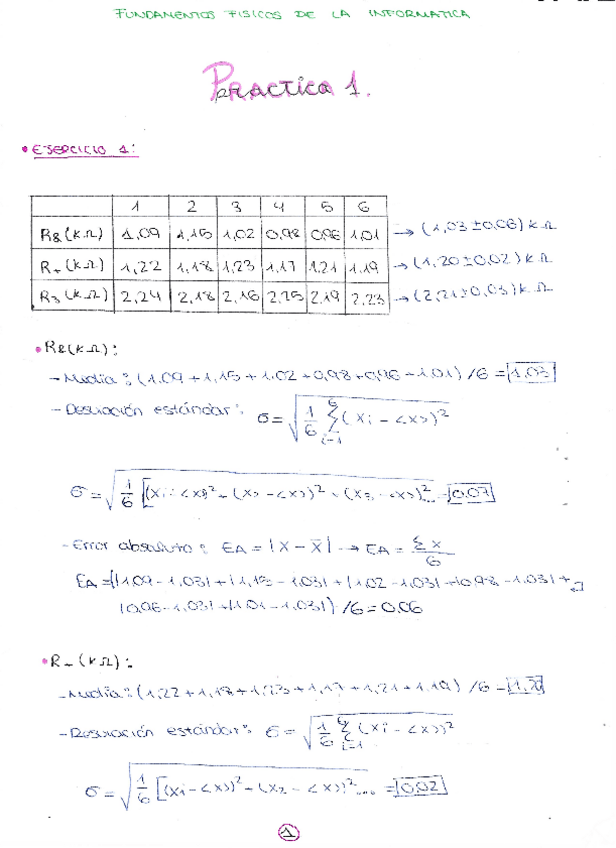 FUNDAMENTOS FISICOS DE LA INFORMATICA
PRACTICA 1.
• EJERCICIO 1:
1 2 3 4 5 6
R2(KΩ) 1,09 1,15 1,02 0,98 0,96 1,01 → (1,03±0,06) KΩ
(KΩ) 1,22 1,18 1,23 1,17 1,21 1,19 → (1,20±0,02) KΩ
R3 (KΩ) 2,24 2,18 2,16 2,25 2,19 2,23 → (2,21±0,03) KΩ
• R2(KΩ):
- Media: (1,09+1,15+1,02+0,98+0,96+1,01) /6 = 1,03
- Desviación estándar: σ = √ 1/6 6 Σ i=1 (xi - <x>)²
σ = √ 1/6 [(xi - <x>)² + (x2 - <x>)² + (x3 - <x>)² = 0,07
- Error absoluto: EA = |X - X̄| → EA = Σx/6
EA = (|1,09-1,03|+|1,15-1,03|+|1,02-1,03|+|0,98-1,03|+
|0,96-1,03|+|1,01-1,03|) /6 = 0,06
• (KΩ):
- Media: (1,22+1,18+1,23+1,17+1,21+1,19) /6 = 1,20
- Desviación estándar: σ = √ 1/6 6 Σ i=1 (xi - <x>)²
σ = √ 1/6 [(xi - <x>)² + (x2 - <x>)² .... = 0,02
1